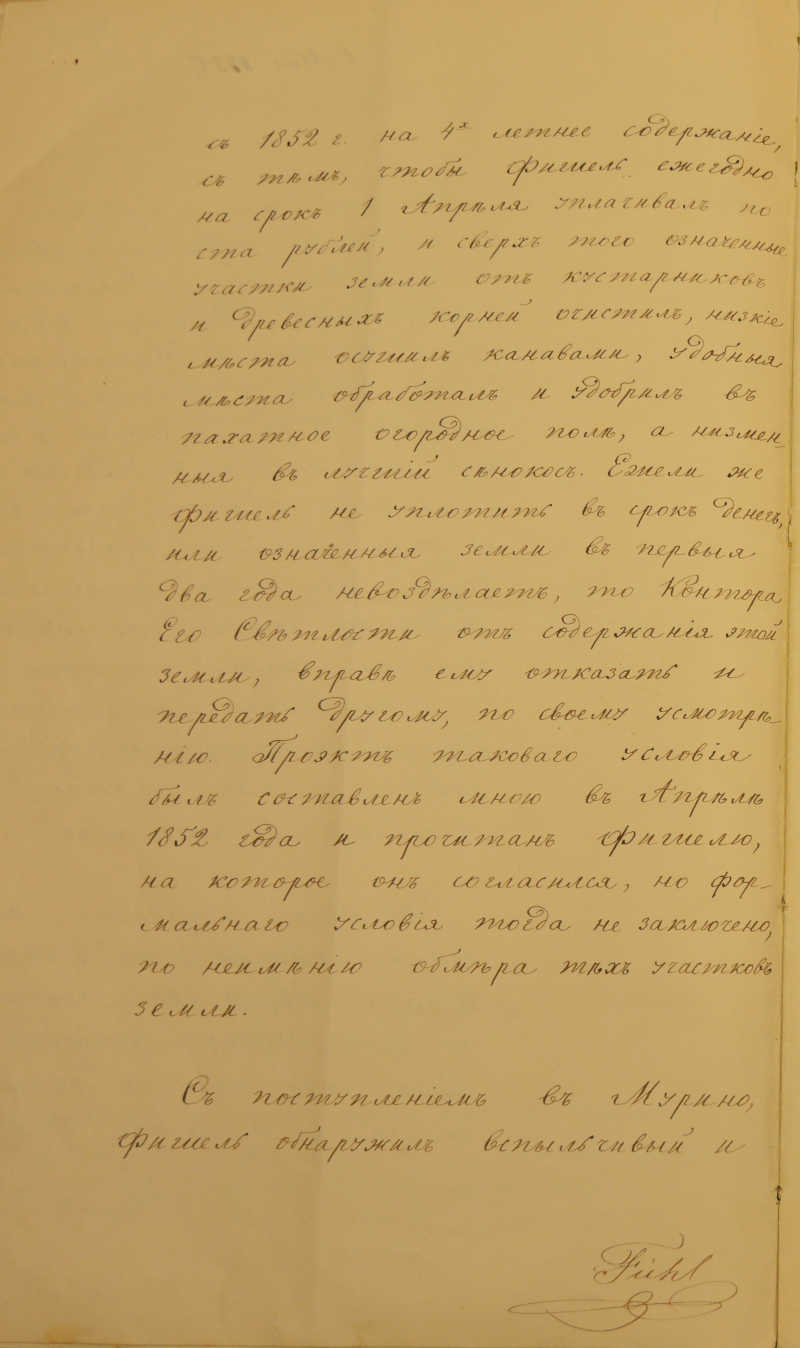 съ 1852 г. на 4х летнее содержаніе,
съ тѣмъ, чтобы Фигшель ежегодно
на срокъ 1 Апрѣля уплачивалъ по
ста рублей, и сверхъ того означенные
участки земли отъ кустарниковъ
и древесныхъ корней очистилъ, низкіе
мѣста осушилъ канавами, удобныя
мѣста обработалъ и удобрилъ въ
пахатное огородное поле, а низмен
ныя въ лучшій сѣнокосъ. Ежели же
Фигшель не уплотитъ въ срокъ денегъ,
или означенныя земли въ первыя
два года невоздѣлаетъ, то Контора
Его Свѣтлости отъ содержанія этой
земли, вправѣ ему отказать и
передать другому, по своему усмотрѣ-
нію. Проэктъ таковаго условія
былъ составленъ мною въ Апрѣлѣ
1852 года и прочитанъ Фигшелю,
на которое онъ согласился, но фор-
мальнаго условія тогда не заключено,
по неимѣнію обмѣра тѣхъ участковъ
земли.
Съ поступленіемъ въ Мурино,
Фигшель обнаружилъ вспыльчивый и
Fühl